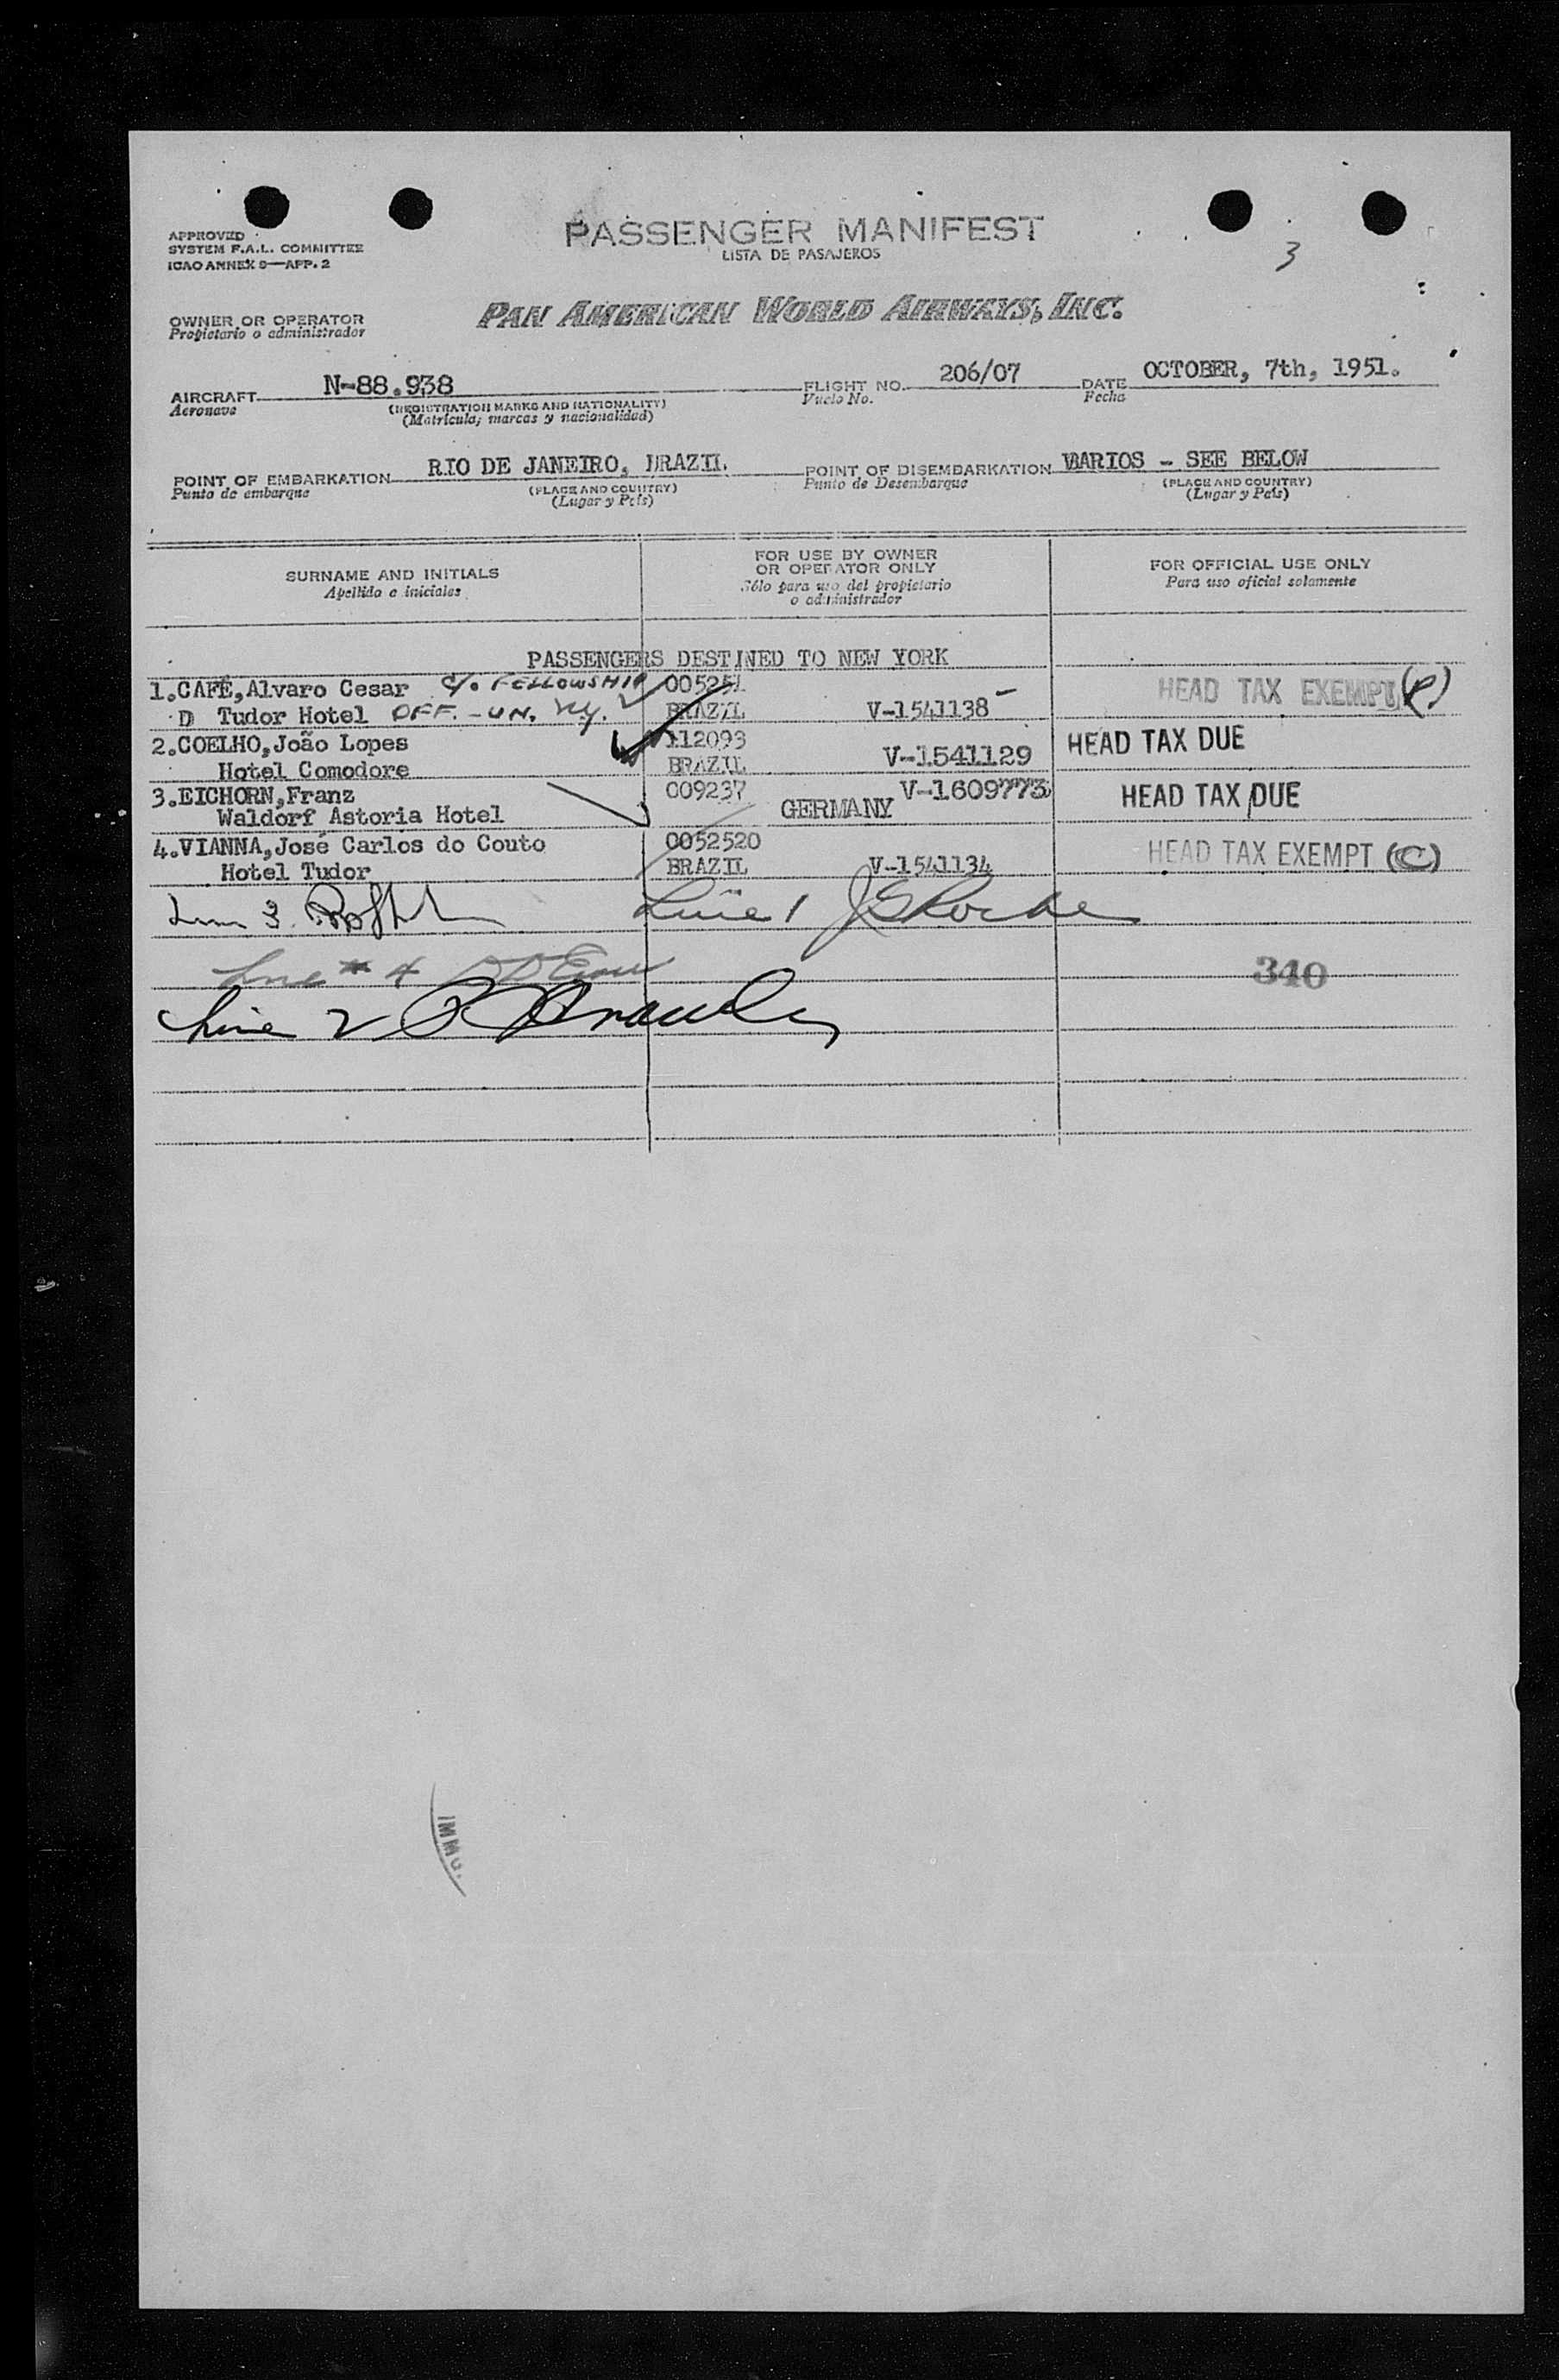 PASSENGER MANIFEST
LISTA DE PASAJEROS
3
APPROVED
SYSTEM F.A.L. COMMITTEE
ICAO ANNEX 9—APP. 2
OWNER OR OPERATOR
Propietario o administrador
PAN AMERICAN WORLD AIRWAYS, INC.
AIRCRAFT N-88.938 FLIGHT NO. 206/07 DATE OCTOBER, 7th, 1951.
Aeronave (REGISTRATION MARKS AND NATIONALITY) Vuelo No. Fecha
(Matrícula, marcas y nacionalidad)
POINT OF EMBARKATION RIO DE JANEIRO, BRAZIL. POINT OF DISEMBARKATION VARIOS - SEE BELOW
Punto de embarque (PLACE AND COUNTRY) Punto de Desembarque (PLACE AND COUNTRY)
(Lugar y País) (Lugar y País)
SURNAME AND INITIALS
Apellido e iniciales
FOR USE BY OWNER
OR OPERATOR ONLY
Sólo para uso del propietario
o administrador
FOR OFFICIAL USE ONLY
Para uso oficial solamente
PASSENGERS DESTINED TO NEW YORK
1.CAFÉ,Alvaro Cesar c/o FELLOWSHIP 005251 HEAD TAX EXEMPT
D Tudor Hotel OFF. - UN. NY. BRAZIL V-1541138
2.COELHO,João Lopes 112093 HEAD TAX DUE
Hotel Comodore BRAZIL V-1541129
3.EICHORN,Franz 009237 V-1609773 HEAD TAX DUE
Waldorf Astoria Hotel GERMANY
4.VIANNA,José Carlos do Couto 0052520 HEAD TAX EXEMPT (C)
Hotel Tudor BRAZIL V-1541134
Line 3. Line 1
Line # 4
340
Line 2
IMMG.